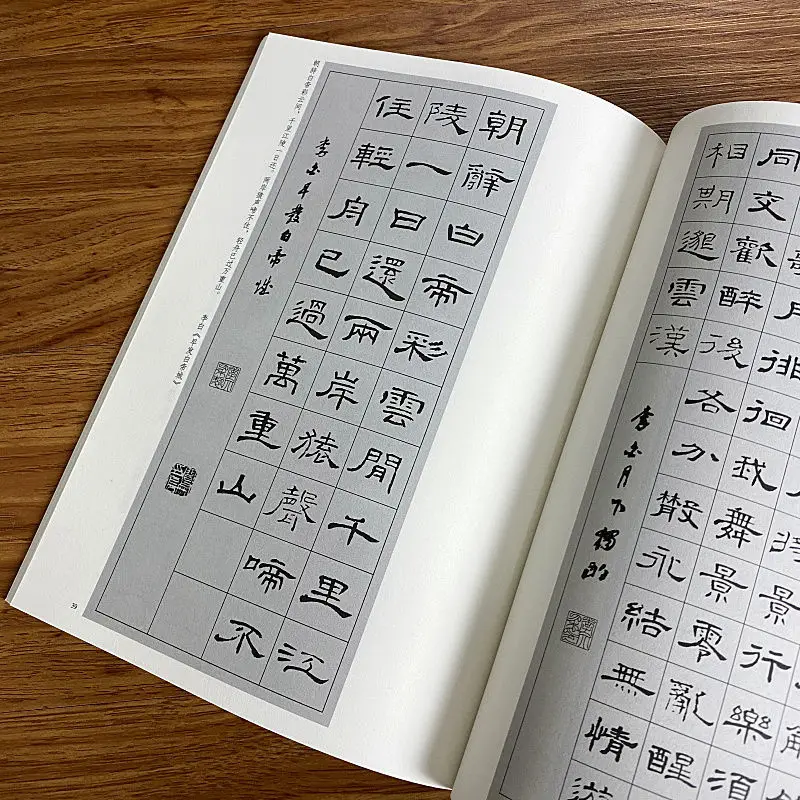 朝辭白帝彩雲閒千里江
陵一日還兩岸猿聲啼不
住輕舟已過萬重山
李白早發白帝城
朝辞白帝彩云间，千里江陵一日还。两岸猿声啼不住，轻舟已过万重山。
李白《早发白帝城》
39
景行樂須
月徘徊我舞景零亂醒
同交歡醉後各分散永結無情遊
相期邈雲漢
李白月下獨酌